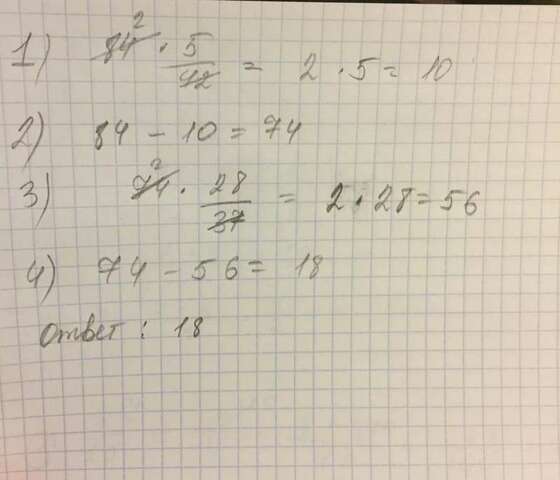 1) 84² · 5/42 = 2 · 5 = 10
2) 84 - 10 = 74
3) 74² · 28/37 = 2 · 28 = 56
4) 74 - 56 = 18
Ответ: 18